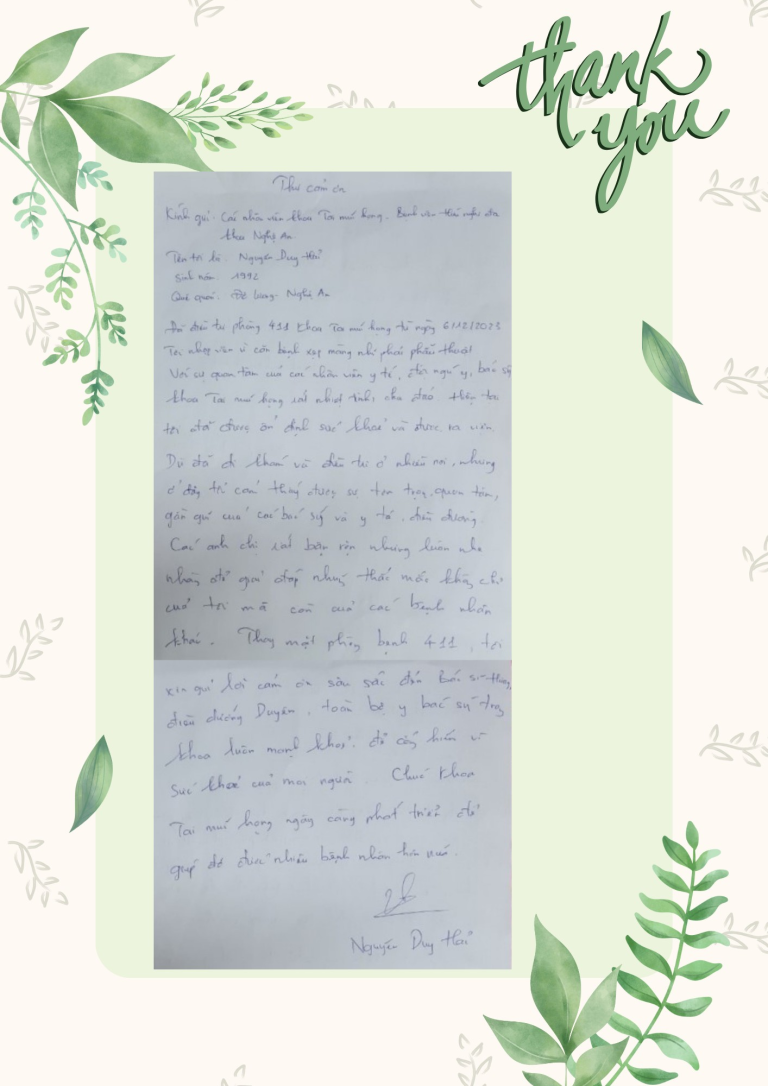 thank
you
Thư cám ơn
Kính gửi: Các nhân viên khoa Tai mũi họng. Bệnh viện Hữu nghị đa
khoa Nghệ An
Tên tôi là: Nguyễn Duy Hải
Sinh năm: 1992
Quê quán: Đô Lương - Nghệ An
Đã điều trị phòng 411 khoa Tai mũi họng từ ngày 6/12/2023
Tôi nhập viện vì căn bệnh màng nhĩ phải phẫu thuật
Với sự quan tâm của các nhân viên y tế, đội ngũ y, bác sỹ
khoa Tai mũi họng rất nhiệt tình, chu đáo
tôi đã được ổn định sức khoẻ và được ra viện.
Dù đã đi khám và điều trị ở nhiều nơi, nhưng
ở đây tôi cảm thấy được sự tôn trọng, quan tâm,
gần gũi của các bác sỹ và y tá, điều dưỡng.
Các anh chị rất bận rộn nhưng luôn nhẹ
nhàng để giải đáp những thắc mắc không chỉ
của tôi mà còn của các bệnh nhân
khác. Thay mặt phòng bệnh 411, tôi
xin gửi lời cám ơn sâu sắc đến bác sĩ
điều dưỡng Duyên, toàn bộ y bác sỹ trong
khoa luôn mạnh khoẻ. để cống hiến vì
sức khoẻ của mọi người. Chúc khoa
Tai mũi họng ngày càng phát triển để
giúp đỡ được nhiều bệnh nhân hơn nữa.
Nguyễn Duy Hải